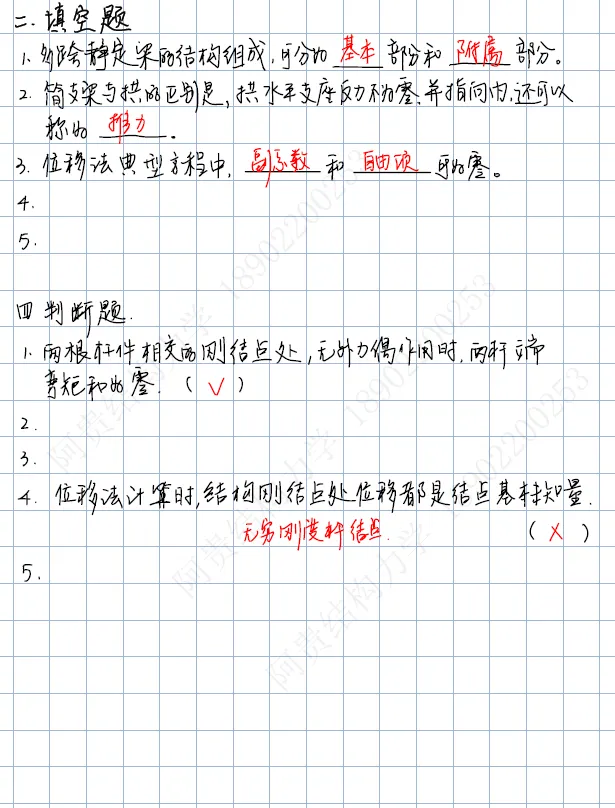 二. 填空题
1. 多跨静定梁的结构组成,可分为 基本 部分和 附属 部分。
2. 简支梁与拱的区别是,拱水平支座反力不为零,并指向内,还可以
称为 推力 。
3. 位移法典型方程中, 副系数 和 自由项 可为零。
4.
5.
四 判断题.
1. 两根杆件相交的刚结点处,无外力偶作用时,两杆端
弯矩和为零. ( √ )
2.
3.
4. 位移法计算时,结构刚结点处位移都是结点基本未知量.
无穷刚度杆结点. ( × )
5.
阿贵结构力学 18902200253
阿贵结构力学 18902200253
阿贵结构力学 18902200253
阿贵结构力学